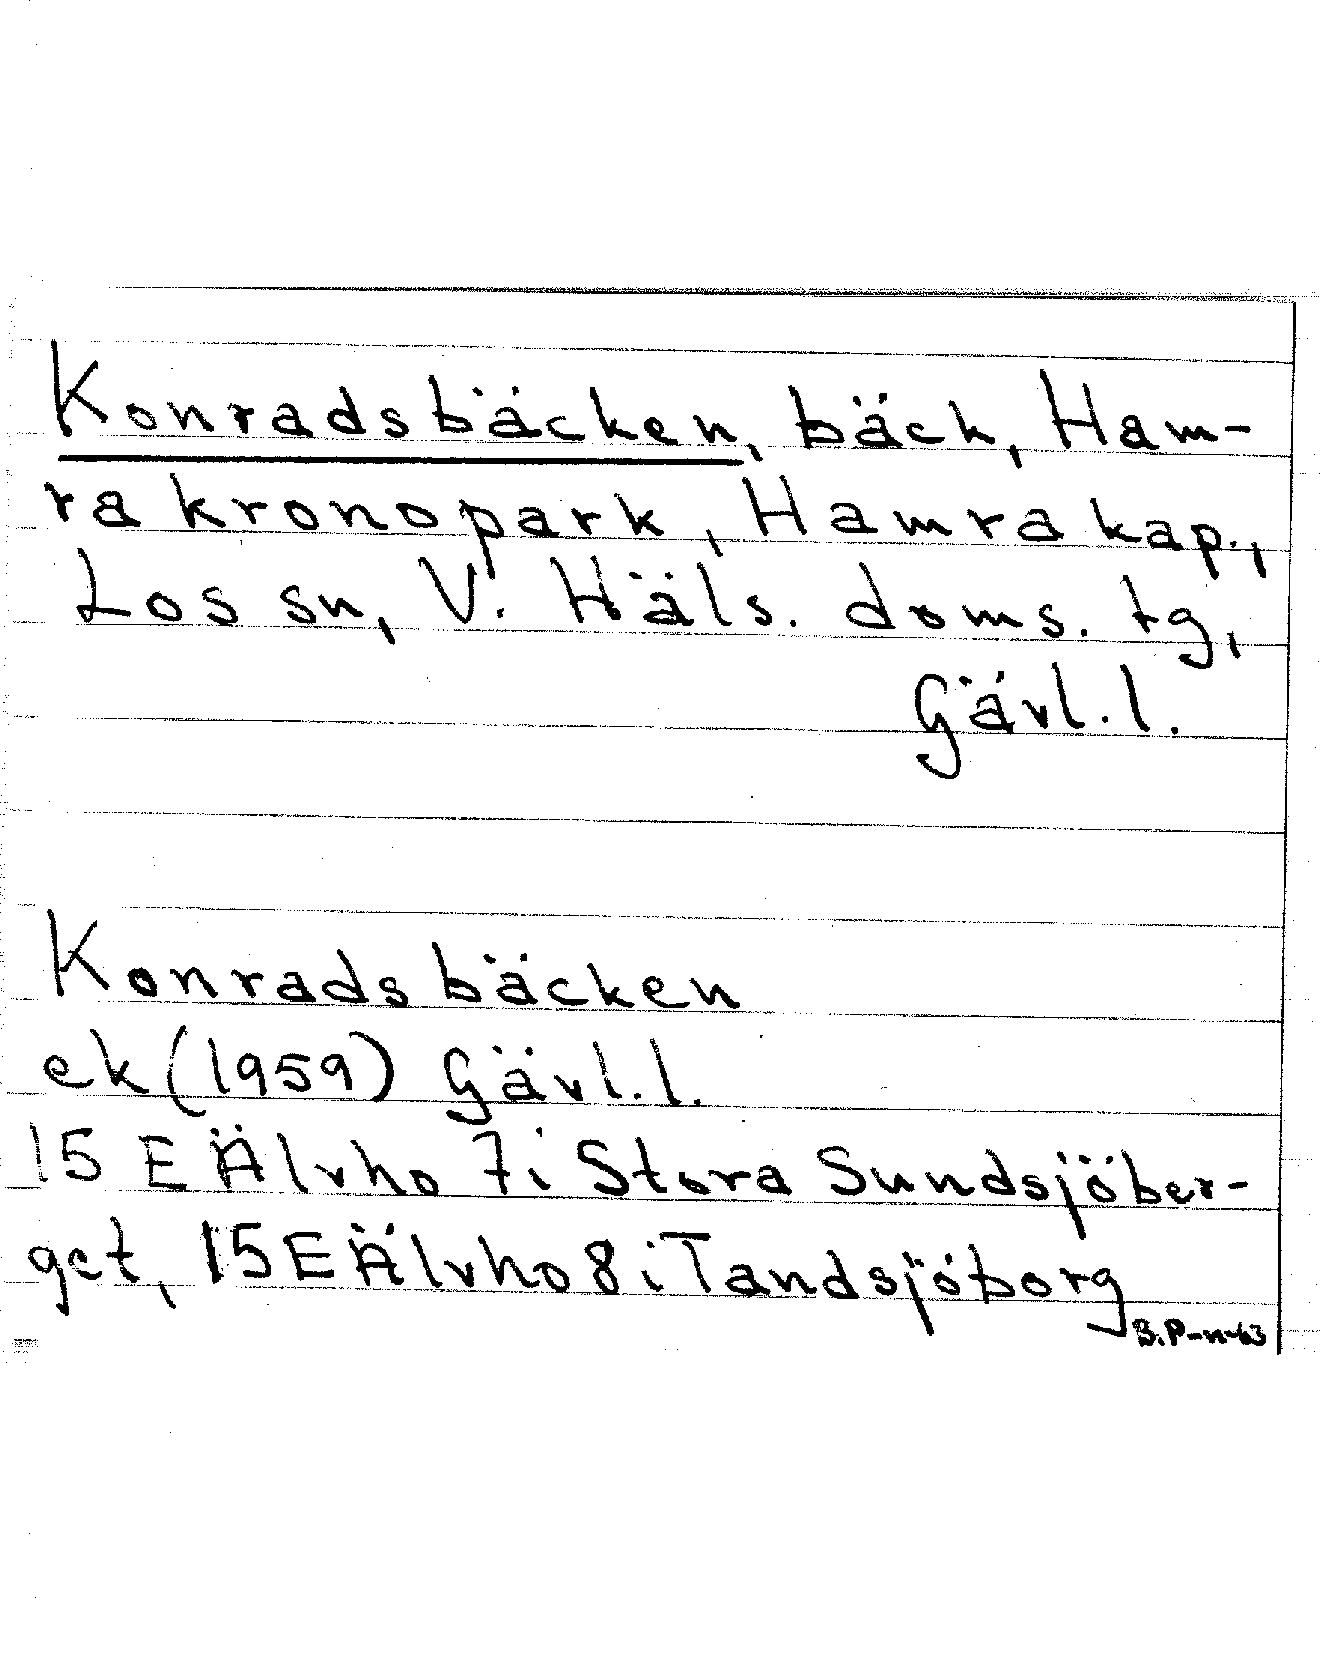 Konradsbäcken, bäck, Ham-
ra kronopark, Hamra kap.,
Los sn, V. Häls. doms. tg,
Gävl. l.
Konradsbäcken
ek (1959) Gävl. l.
15 E Älvho 7i Stora Sundsjöber-
get, 15 E Älvho 8i Tandsjöborg
B.P-n-63